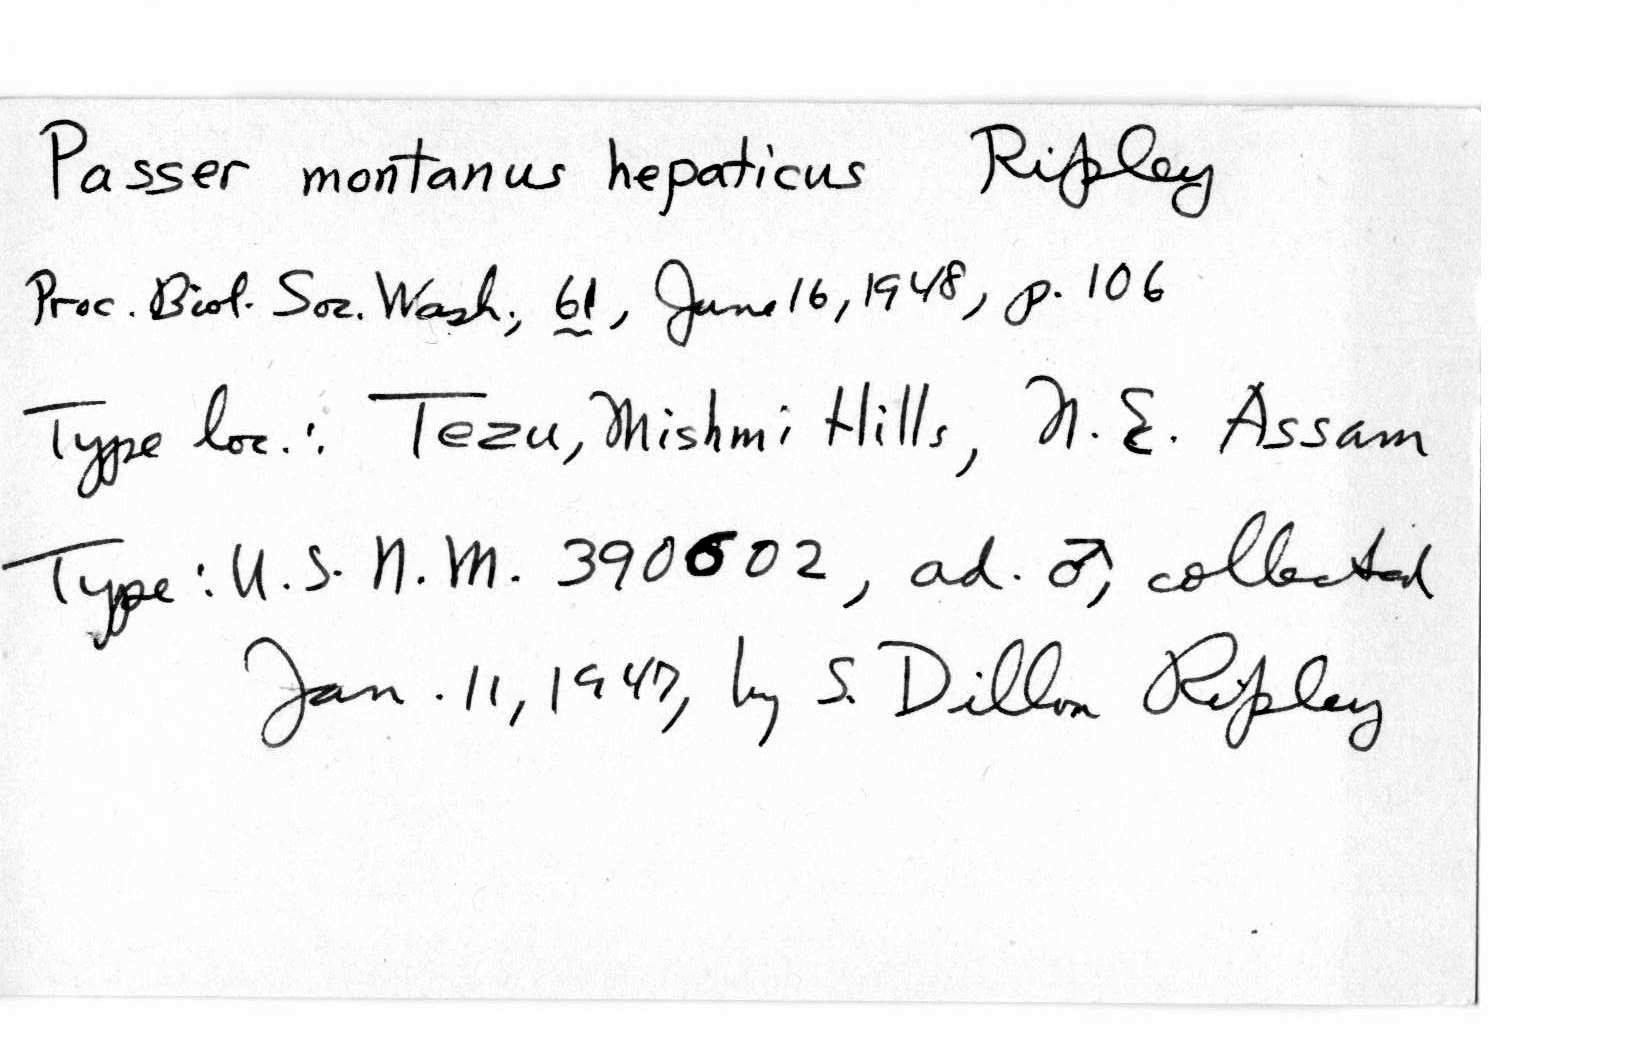 Passer montanus hepaticus Ripley
Proc. Biol. Soc. Wash., 61, June 16, 1948, p. 106
Type loc.: Tezu, Mishmi Hills, N.E. Assam
Type: U.S.N.M. 390602, ad. ♂, collected
Jan. 11, 1947, by S. Dillon Ripley